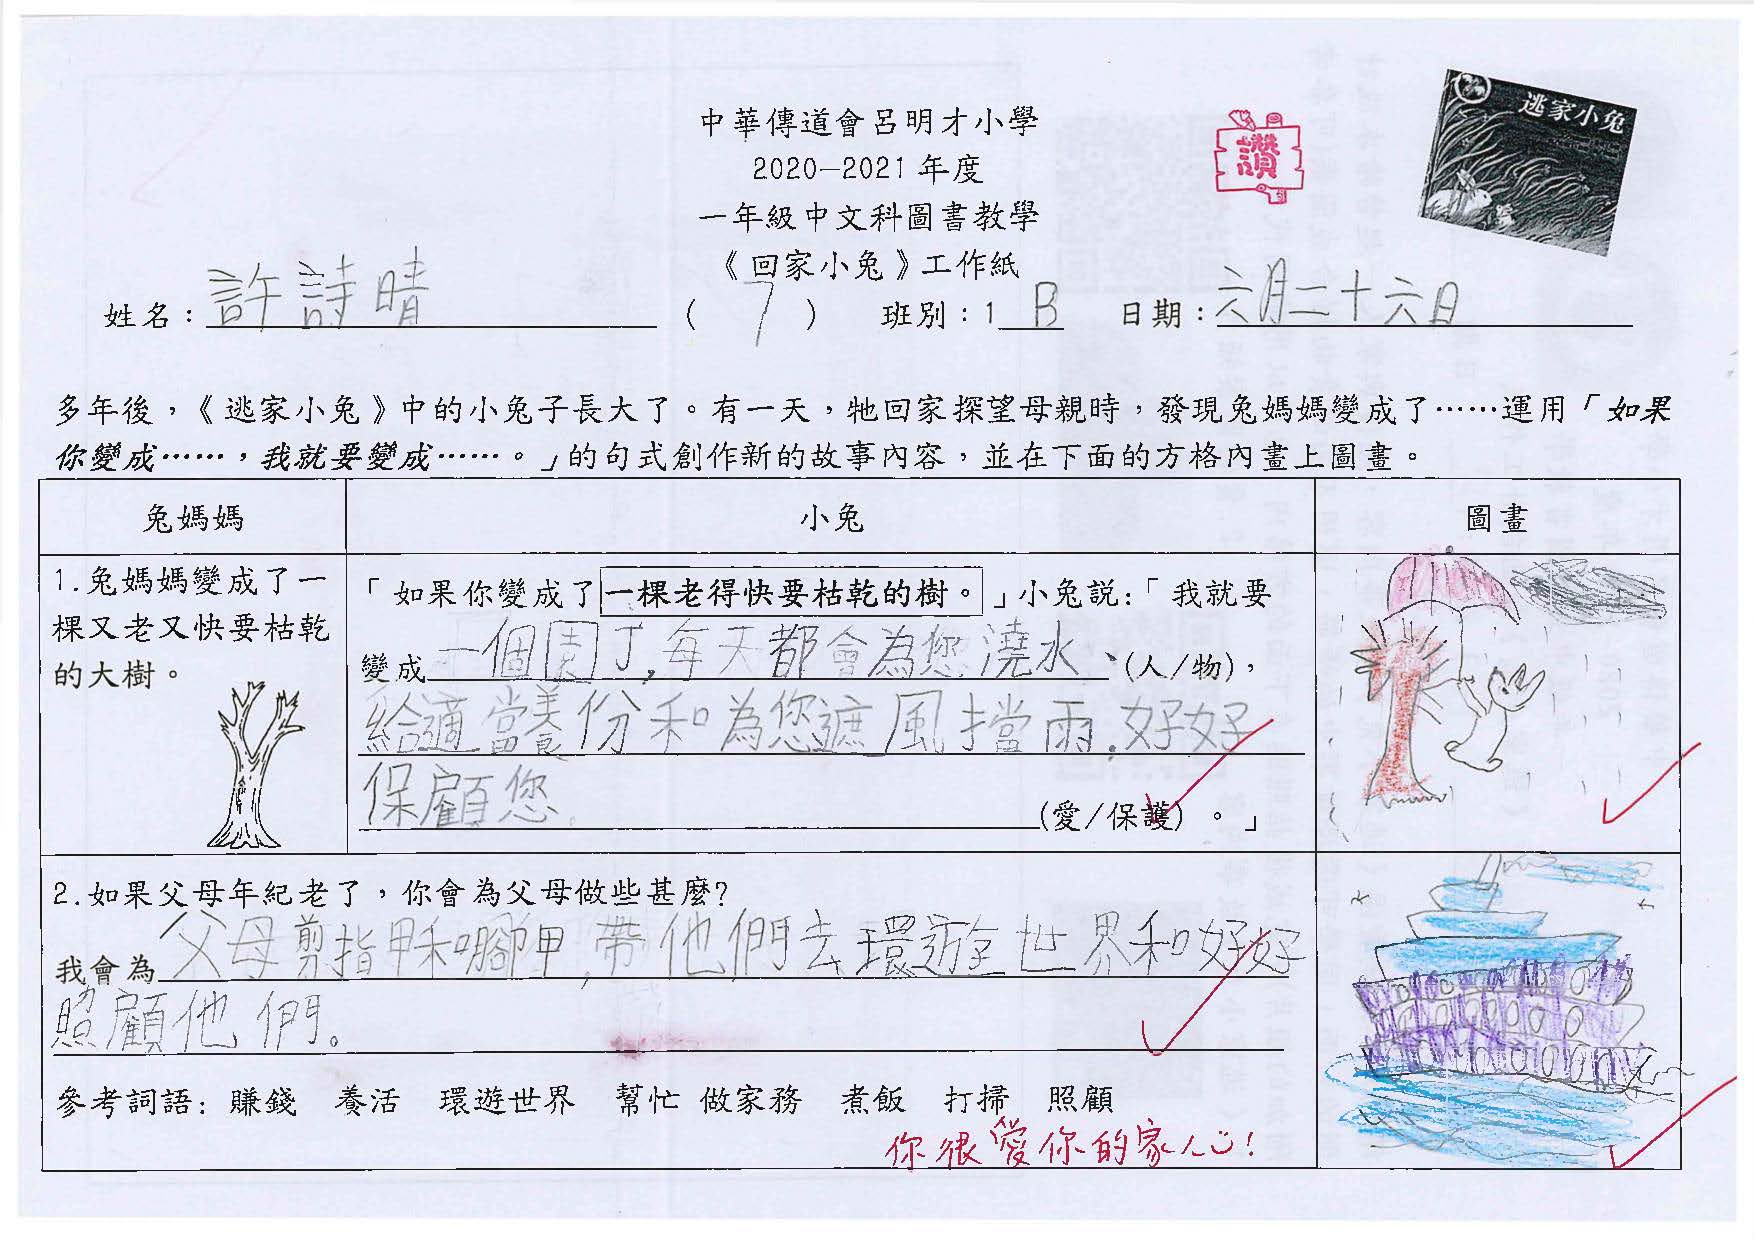 中華傳道會呂明才小學
2020-2021 年度
一年級中文科圖書教學
《回家小兔》工作紙
讚
逃家小兔
姓名：許詩晴 ( 7 ) 班別：1 B 日期：六月二十六日
多年後，《逃家小兔》中的小兔子長大了。有一天，牠回家探望母親時，發現兔媽媽變成了……運用「如果
你變成……，我就要變成……。」的句式創作新的故事內容，並在下面的方格內畫上圖畫。
兔媽媽 小兔 圖畫
1.兔媽媽變成了一
棵又老又快要枯乾
的大樹。
「如果你變成了一棵老得快要枯乾的樹。」小兔說：「我就要
變成一個園丁,每天都會為您澆水、(人/物)，
給適當養份和為您遮風擋雨.好好
保顧您。(愛/保護)。」
2.如果父母年紀老了，你會為父母做些甚麼?
我會為父母剪指甲和腳甲,帶他們去環遊世界和好好
照顧他們。
參考詞語: 賺錢 養活 環遊世界 幫忙 做家務 煮飯 打掃 照顧
你很愛你的家人!